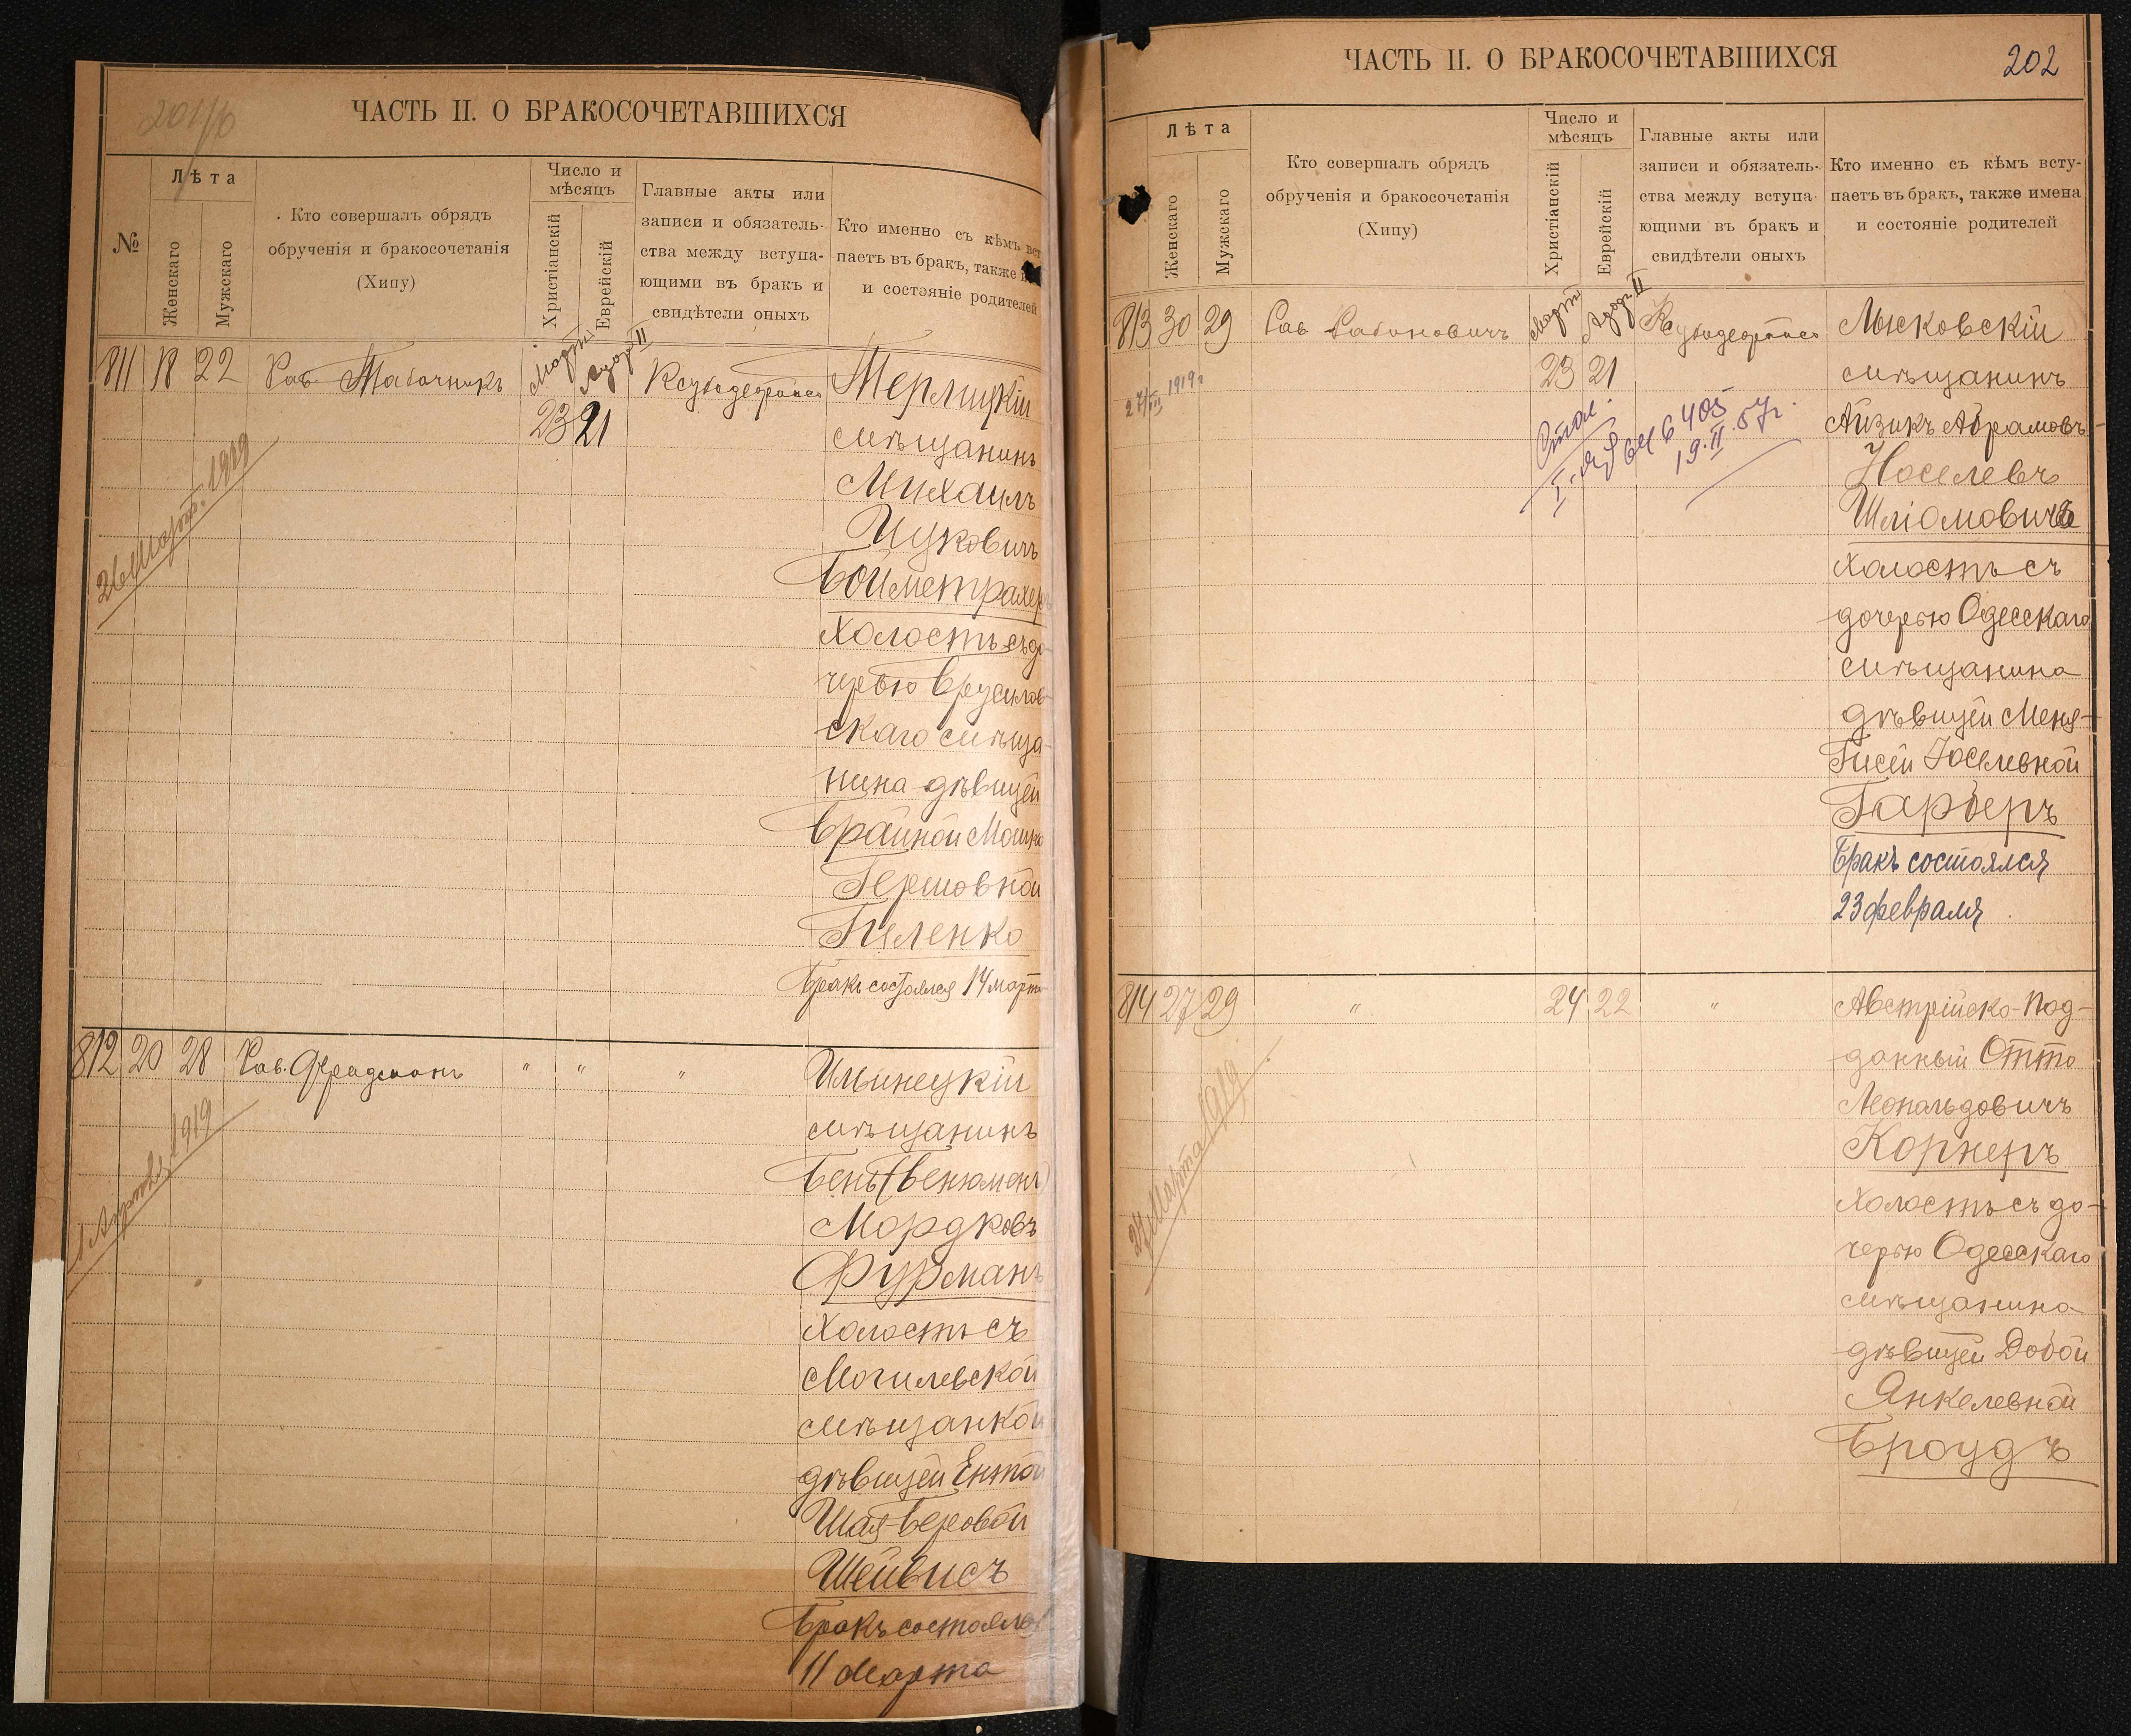 ЧАСТЬ II. О БРАКОСОЧЕТАВШИХСЯ
№
Лѣта
Женскаго
Мужскаго
Кто совершалъ обрядъ
обрученія и бракосочетанія
(Хипу)
Число и
мѣсяцъ
Христіанскій
Еврейскій
Главные акты или
записи и обязатель-
ства между вступа-
ющими въ бракъ и
свидѣтели оныхъ
Кто именно съ кѣмъ вст
паетъ въ бракъ, также
и состояніе родителей
811 18 22 Рав. Табачникъ
Мартъ Адаръ II
23 21
26 Март. 1919
мѣщанинъ
Михаилъ
Ицковичъ
Бойметрахеръ
Холостъ съ до-
черью Брусилов-
скаго мѣща-
нина дѣвицей
Гершовной
Пиленко
Бракъ состоялся 14 марта
812 20 28 Рав. Фридманъ " " "
1 Апрѣля 1919
Ильинецкій
мѣщанинъ
Бенъ (Бенюменъ)
Мордковъ
Фурманъ
Холостъ съ
Могилевской
мѣщанкой
дѣвицей Ентой
Шая-Беровой
Шейвисъ
Бракъ состоялся
11 марта
ЧАСТЬ II. О БРАКОСОЧЕТАВШИХСЯ
202
Лѣта
Женскаго
Мужскаго
Кто совершалъ обрядъ
обрученія и бракосочетанія
(Хипу)
Число и
мѣсяцъ
Христіанскій
Еврейскій
Главные акты или
записи и обязатель-
ства между вступа-
ющими въ бракъ и
свидѣтели оныхъ
Кто именно съ кѣмъ всту-
паетъ въ бракъ, также имена
и состояніе родителей
813 30 29 Рав. Рабиновичъ
Мартъ Адаръ II
23 21
27/III 1919 г
19.II.57г.
Лысковскій
мѣщанинъ
Айзикъ Абрамовъ-
Иоселевъ
Шліомовичъ
Холостъ съ
дочерью Одесскаго
мѣщанина
дѣвицей Меня-
Гисей Іоселевной
Гарберъ
Бракъ состоялся
23 февраля
814 27 29 " 24 22 "
27 Марта 1919
Австрійско-Под-
данный Отто
Леопольдовичъ
Корнеръ
Холостъ съ до-
черью Одесскаго
мѣщанина
дѣвицей Добой
Янкелевной
Броудъ